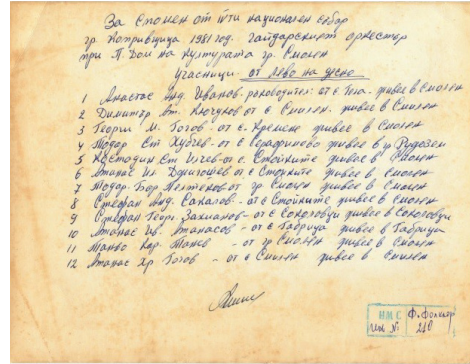 За спомен от пти национален събор
гр. Копривщица 1981 год. гайдарският оркестър
при П. Дом на културата гр. Смолен
Учасници - от лево на десно
1 Анастас Анд. Иванов. ръководител: от с. живее в Смолен
2 Димитър Ат. Кючуков от с. Смилен. живее в Смилен
3 Георги М. Гогов - от с. Кремене живее в Смолен
4 Тодор Ст - от с Серафимово живее в гр Рудозем
5 Костадин Ст Илчев - от с. Стойките живее в Смолен
6 Атанас Ил от с Стоките живее в Смолен
7 Тодор. Бор Пелтеков от гр Смолен живее в Смолен
8 Стефан Анд. Сакалов - от с Стойките живее в Смолен
9 Стефан Георг. Захманов - от с Соколовци живее в Соколовци
10 Атанас Ив. Атанасов - от с Габрица живее в Габрица
11 Маньо Кар. Танев - от гр Смолен живее в Смолен
12 Атанас Хр Гогов - от с Смилен живее в Смилен
НМС Ф. фолклор
инв. № 210